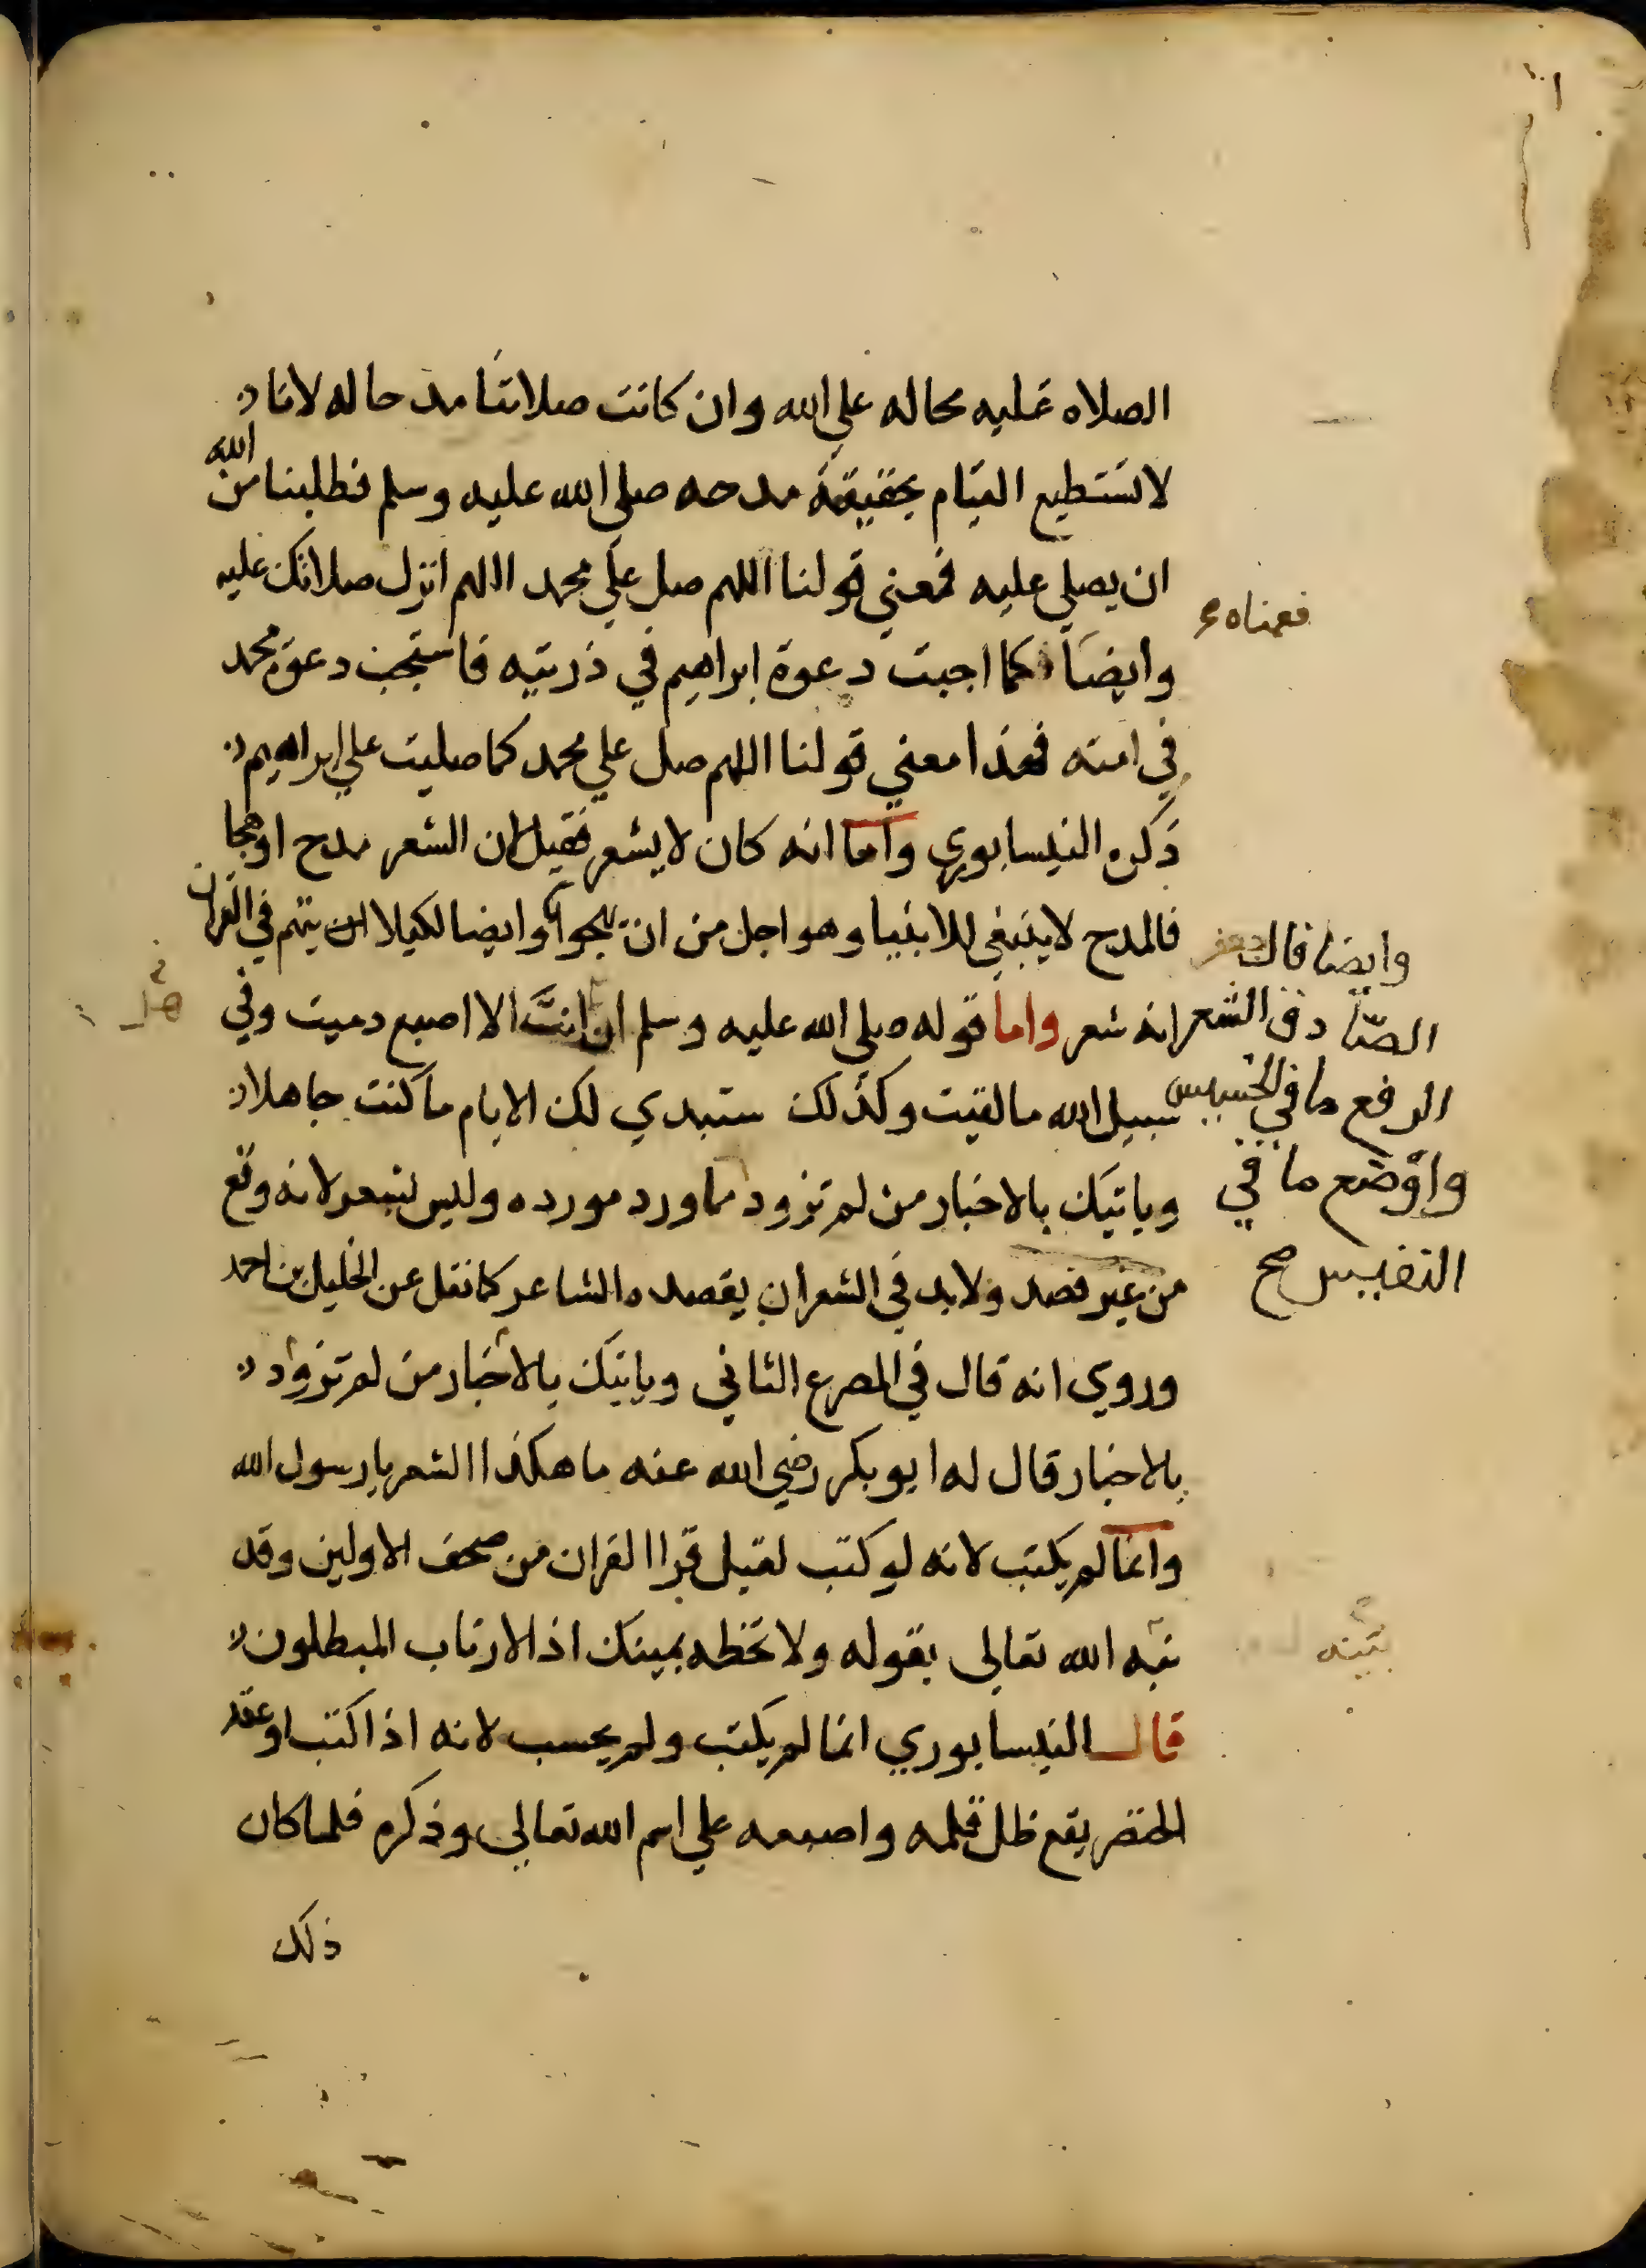 الصلاه عليه محاله على الله وان كانت صلاتنا مدحا له لانا
لا نستطيع القيام بحقيقة مدحه صلى الله عليه وسلم فطلبنا من الله
ان يصلي عليه فمعني قولنا اللهم صل علي محمد اللهم انزل صلاتك عليه
فمعناه
وايضا كما اجبت دعوة ابراهيم في ذريته فاستجب دعوة محمد
في امته فهذا معني قولنا اللهم صل علي محمد كما صليت علي ابراهيم
ذكره النيسابوري واما انه كان لا يشعر فقيل لان الشعر مدح او هجا
فالمدح لا ينبغي للانبيا وهو اجل من ان يهجوا وايضا لكيلا يتهم في القران
انه شعر واما قوله صلى الله عليه وسلم ان انت الا اصبع دميت وفي
سبيل الله ما لقيت وكذلك ستبدي لك الايام ما كنت جاهلا
وياتيك بالاخبار من لم تزود مما ورد مورده وليس بشعر لانه وقع
من غير قصد ولا بد في الشعر ان يقصده الشاعر كما نقل عن الخليل بن احمد
وروي انه قال في المصرع الثاني وياتيك بالاخبار من لم تزود
بالاخبار قال له ابو بكر رضي الله عنه ما هكذا الشعر يا رسول الله
وانما لم يكتب لانه لو كتب لقيل قرا القران من صحف الاولين وقد
نبه الله تعالى بقوله ولا تخطه بيمينك اذا لارتاب المبطلون
قال النيسابوري انما لم يكتب ولم يحسب لانه اذا كتب او عقد
الخنصر يقع ظل قلمه واصبعه علي اسم الله تعالى وذكره فلما كان
ذلك
وايضا قال جعفر
الصادق الشعر
الرفع ما في الخسيس
واوضع ما في
النفيس صح